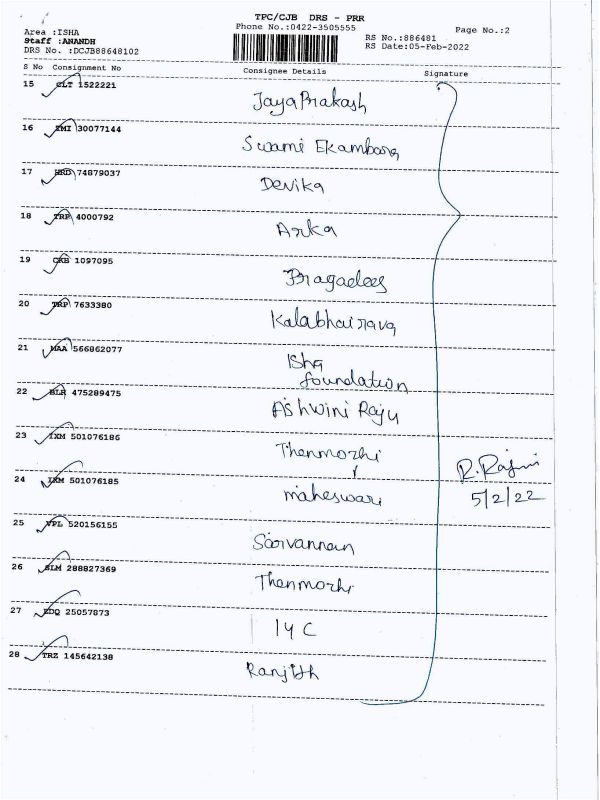 TPC/CJB DRS - PRR
Phone No.:0422-3505555
Page No.:2
Area :ISHA
Staff :ANANDH
RS No.:886481
DRS No. :DCJB88648102
RS Date:05-Feb-2022
S No Consignment No Consignee Details Signature
15 CLT 1522221
JayaPrakash
16 IMI 30077144
Swami Ekambara
17 HRD 74879037
Devika
18 TRP 4000792
Arka
19 CKB 1097095
Pragadees
20 TRP 7633380
Kalabhairava
21 MAA 566862077
Isha
foundation
22 BLR 475289475
Ashwini Raju
23 IXM 501076186
Thenmozhi
R. Rajini
24 IXM 501076185
maheswari
5/2/22
25 VPL 520156155
Saravannan
26 SLM 288827369
Thenmozhi
27 EDQ 25057873
IYC
28 TRZ 145642138
Ranjith